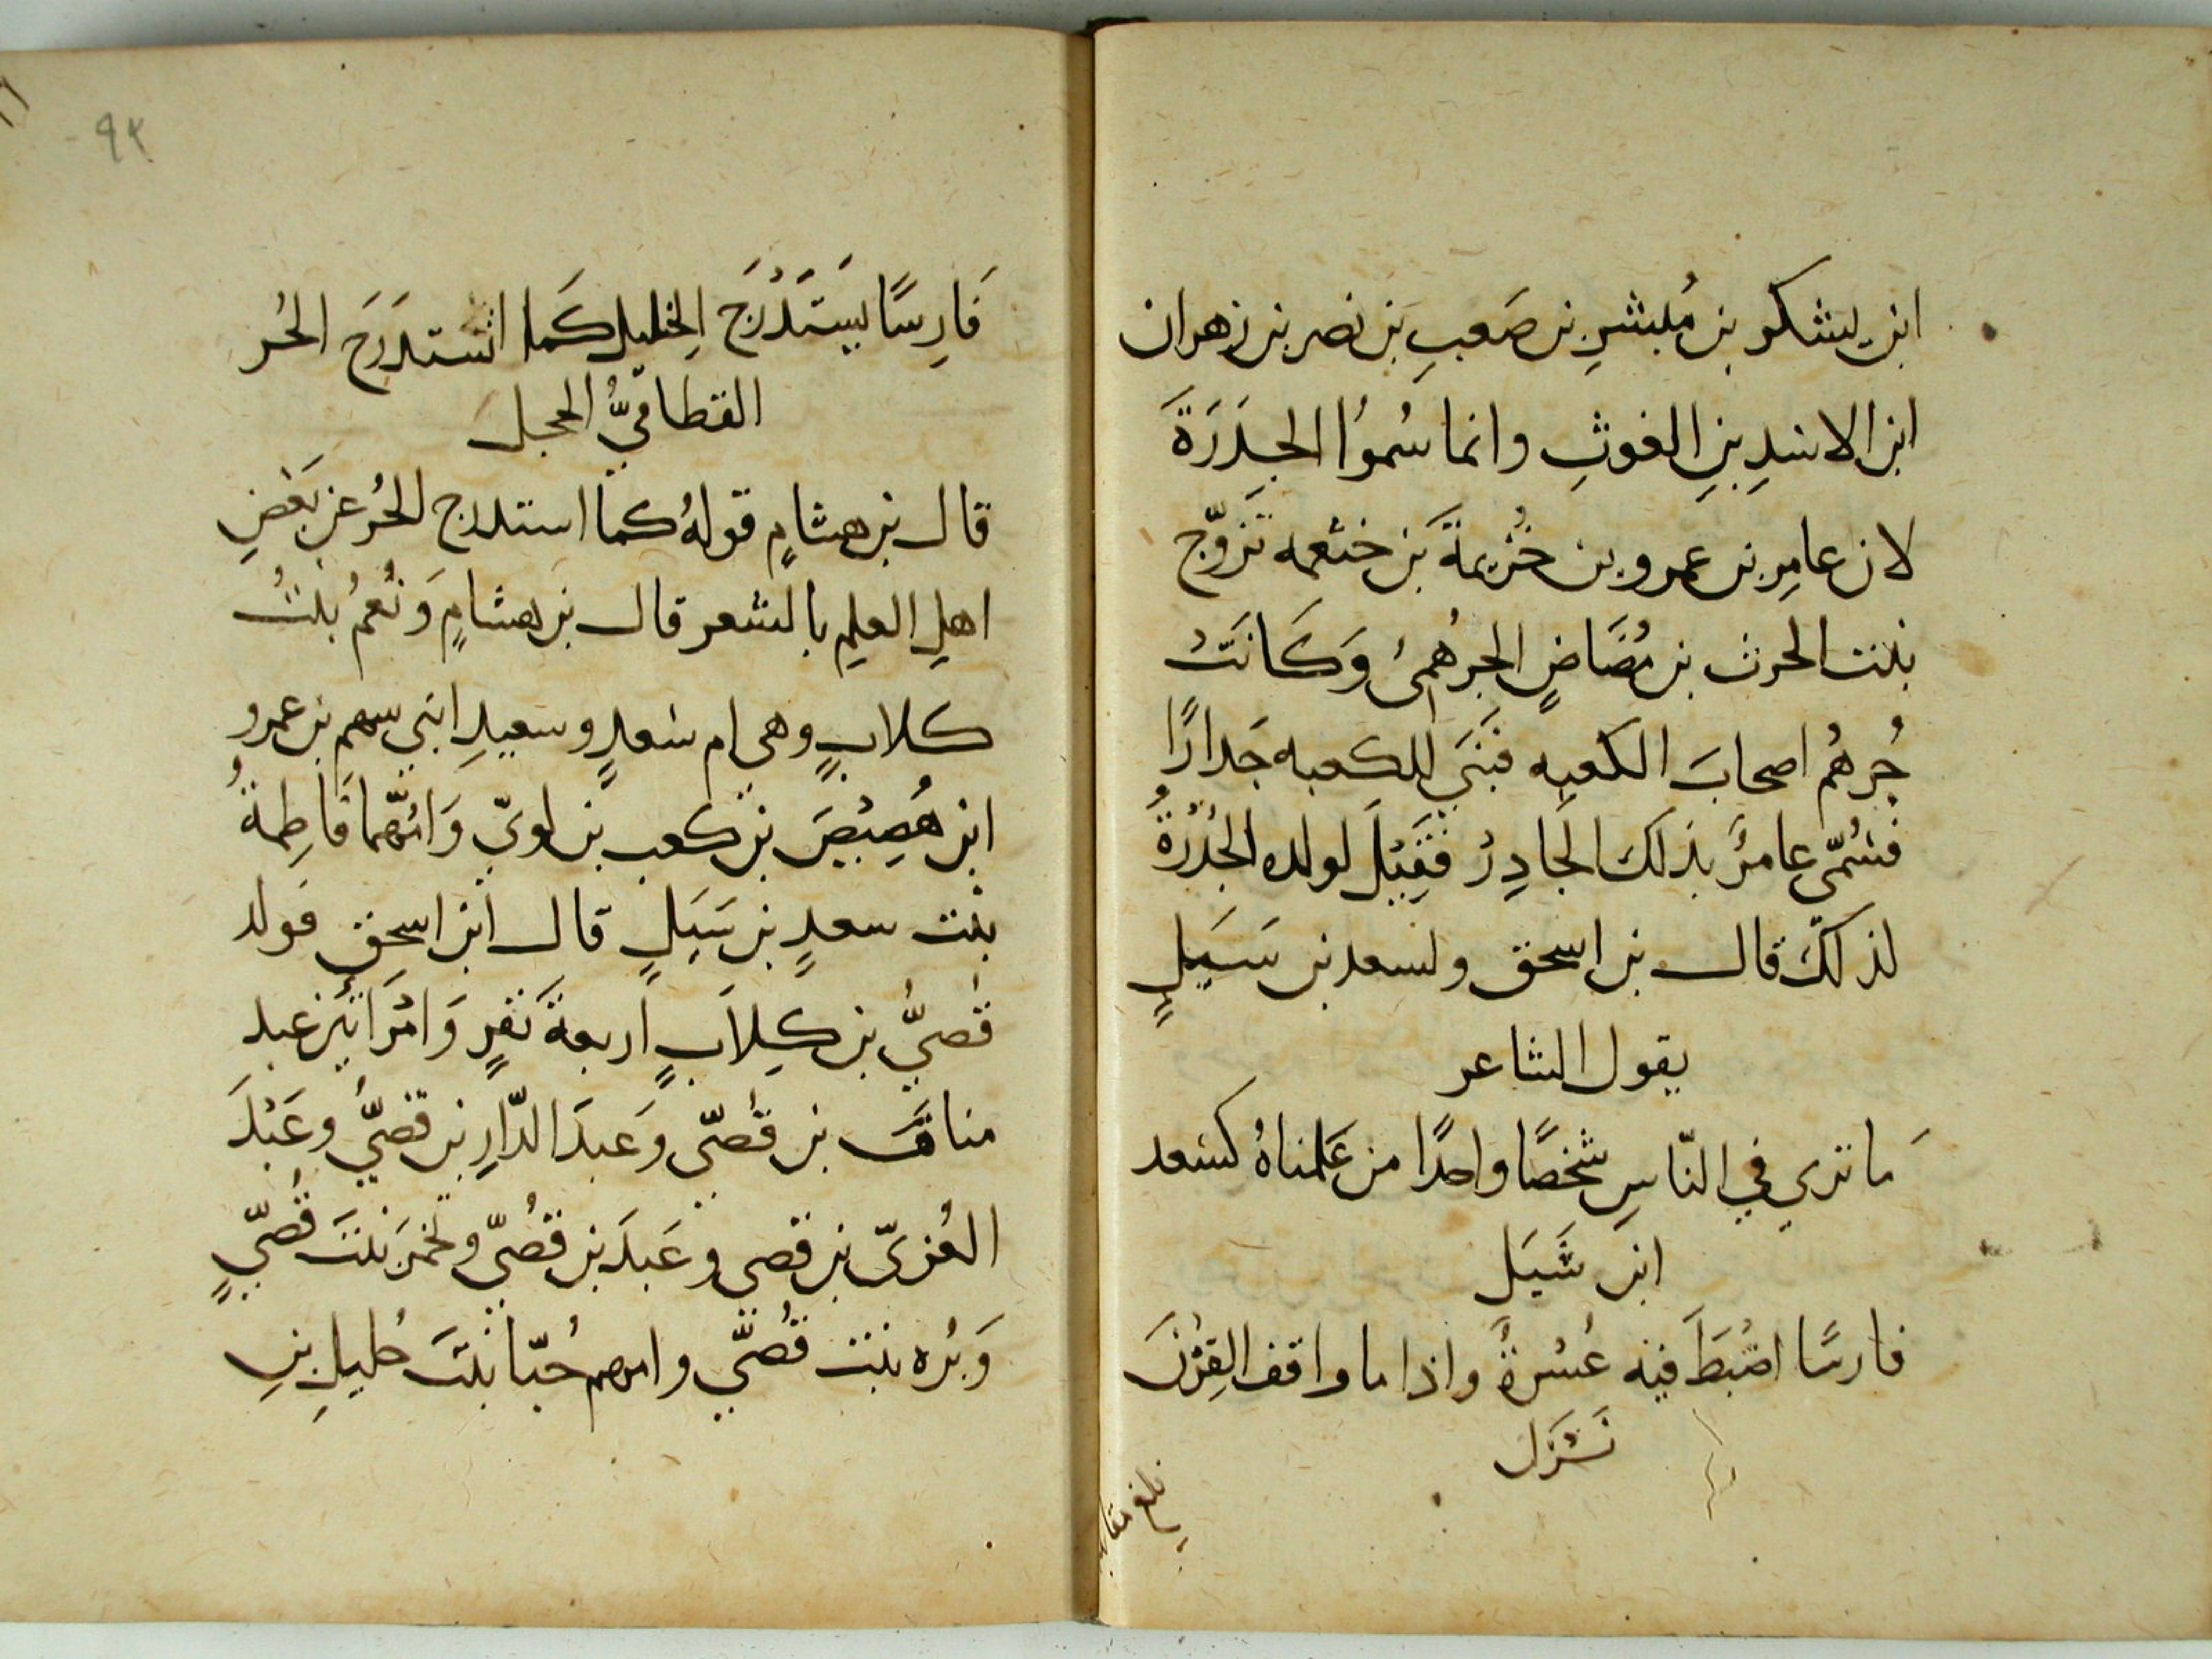 ابن يشكر بن مُبشرِ بن صَعبِ بن نصر بن زهران
ابن الاسدِ بنِ الغوثِ وانما سُموُا الجَدَرَةَ
لان عامِر بن عمرو بن خُزيمةَ بن خثعمه تَزوّج
بنت الحرث بن مُضَاضٍ الجُرهُمىُ وَكَانَتْ
جُرهُم اصحابَ الكعبه فبَنَي للكعبه جَدارًا
فسُمّى عامرُ بذلك الجَادِرُ فَقِيْلَ لولده الجُدَرَةُ
لذلكَ قال بن اسحق ولسعد بن سَيَلٍ
يقول الشاعر
مَا نري في النّاسِ شخصًا واحدًا من عَلمناهُ كسعد
ابن سَيَل
فارسًا اضْبَطَ فيه عُسْرةُ واذا ما واقف القِرْنَ
نَزَل
بلغ مقا
٩٣
فَارِسًا يَسْتَدْرَج الخيل كَما اسْتدَرَجَ الحُر
القطاميُّ الحجل
قال بن هشامٍ قولهُ كما استدرج الحُر عن بَعْضِ
اهلِ العلمِ بالشعر قال بن هشامٍ وَنُعمُ بنتُ
كلابٍ وهى ام سْعدٍ وسعيدِ ابنى سهم بن عمرو
ابن هُصِيْصَ بن كعب بن لوىّ وَامّهما فَاطِمةُ
بنت سعدٍ بن سَيَلٍ قال ابن اسحق فولد
قُصيُّ بن كِلاَبٍ اربعةَ نَفرٍ وَامْرَاتين عبد
منافَ بن قُصّى وَعبدَ الدّارِ بن قصيُّ وعَبْدَ
العُزىّ بن قصى وعَبدَ بن قُصّي وتخمرَ بنتَ قُصّيٍ
وَبُره بنت قُصّي وامهم حُبّا بنتَ حُليلِ بنِ